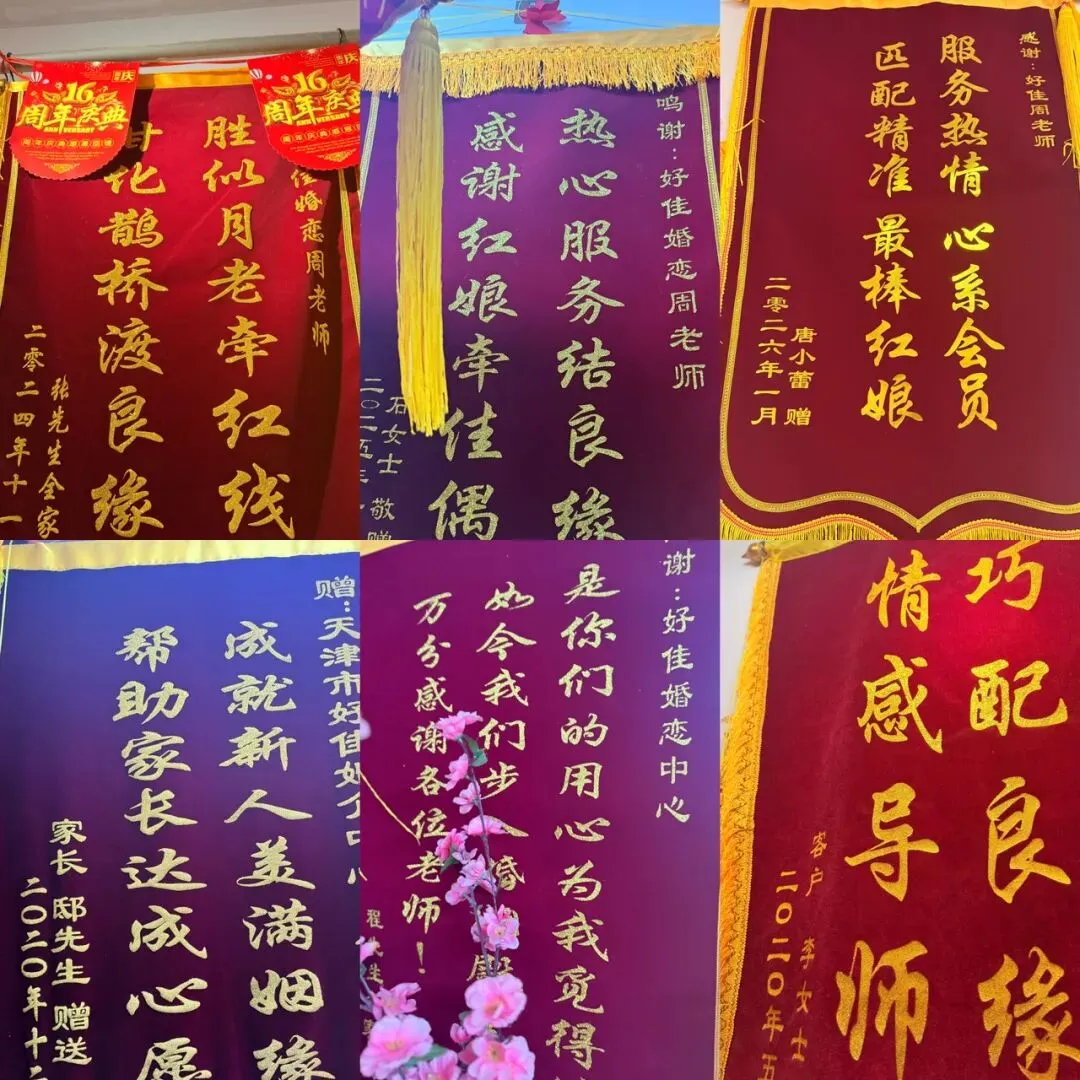 16
周年庆典
ANNIVERSARY
16
周年庆典
ANNIVERSARY
佳婚恋周老师
胜似月老牵红线
化鹊桥渡良缘
张先生全家
二零二四年十一
鸣谢:好佳婚恋周老师
热心服务结良缘
感谢红娘牵佳偶
石女士 敬赠
二〇二五年
感谢:好佳周老师
服务热情 心系会员
匹配精准 最棒红娘
唐小蕾 赠
二零二六年一月
赠:天津市好佳婚
成就新人美满姻缘
帮助家长达成心愿
家长 邸先生 赠送
二〇二〇年十二
谢:好佳婚恋中心
是你们的用心为我觅得
如今我们步入婚
万分感谢各位老师!
程
巧配良缘
情感导师
客户 李女士
二〇二〇年五